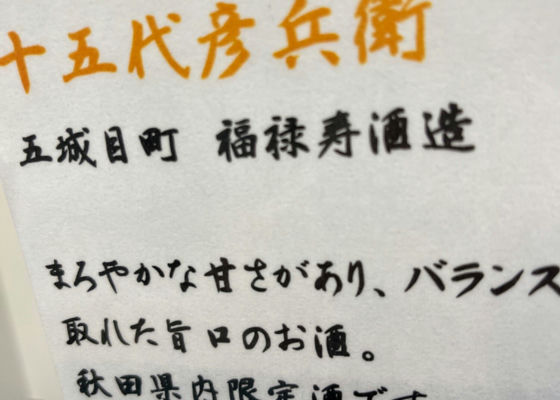 十五代彦兵衛
五城目町 福禄寿酒造
まろやかな甘さがあり、バランス
取れた旨口のお酒。
秋田県内限定酒です